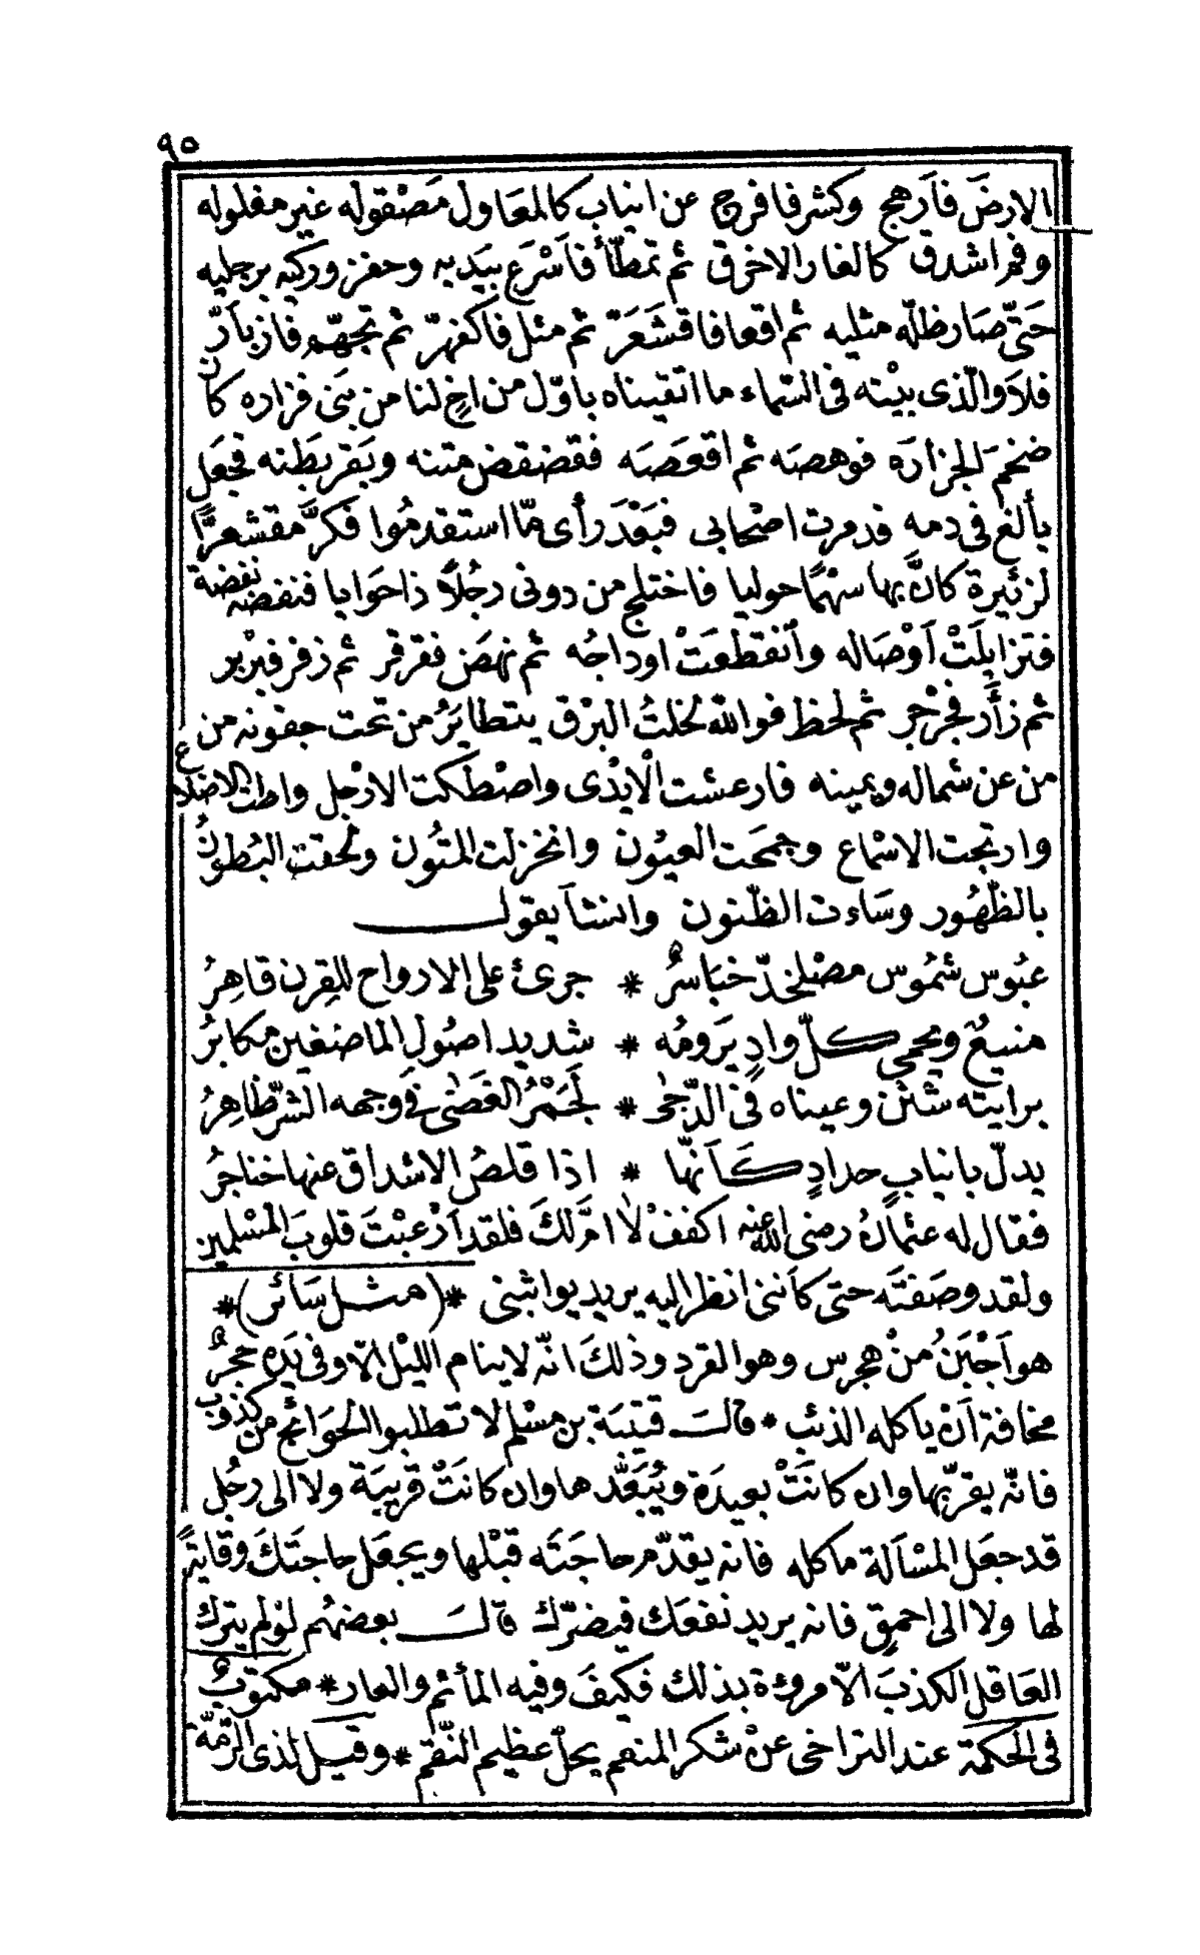 ٩٥
الارضَ فاَرهج وكشر فافرج عن انياب كالمعَاول مَصْقوله غير مفلوله
وفم اشدق كالغار الاخرق ثم تمطّأ فاَسْرَع بيَديه وحفز وركيه برجليه
حَتّى صَار ظلّه مثليه ثم اقعا فاقشَعَرّ ثم مثل فاكفهرّ ثم تجهّم فازباَرّ
فلاَ والّذى بيْته فى السّماء ما اتقيناه باوّل من اخٍ لنا من بَنى فزاره كان
ضخمَ الجزارَه فوهصَه ثم اقعَصَه فقضقض متنه وبَقر بَطنه فجَعَل
يألغ فى دمه فذمرت اصْحابى فبَعْدَ رأى ممّا استقدمُوا فكرَّ مقشعرًّا
لزئيرة كانَّ بها سهْمًا حوليا فاختلج من دونى رجُلاً ذا حَوَايا فنفضه نفضة
فتزايلَتْ اَوْصَاله وانقطعَتْ اوداجُه ثم نهضَ فقرقر ثم زفر فبرْبر
ثم زأَر فجرْجر ثم لحظ فوالله لخلتُ البرْق يتطايَرُ من تحت جفونه من
من عن شماله ويمينه فارعشت الْايْدى واصْطكت الارْجل واطت الاضلاع
وارتجت الاسْماع وجمحَت العيُون وانخزلت المتُون ولحقت البُطونُ
بالظّهُور وسَاءت الظّنون وانشأ يقول
عبُوس شمُوس مصْلخدّ خبَاسرٌ * جرئ على الارواح للقِرن قاهِرُ
منيعٌ ويحمي كلّ وادٍ يَرومُه * شديد اصُولِ الماضغين مكابرُ
براثيَنه شثن وعيناه فى الدّجى * لَجَمْرُ الغَضى فى وجهه الشرّ ظاهِرُ
يدلّ بانيابٍ حدادٍ كَاَنهّا * اذا قلصُ الاشداق عنها خناجرُ
فقال له عثمانُ رضى الله عنه اكففْ لا امَّ لكَ فلقد اَرْعبْتَ قلوبَ المسْلمين
ولقد وصَفتَه حتى كاَننى انظر اليه يريد يواثبنى *(مثل سَائر)*
هو اَجْبَنُ منْ هجرس وهو القرد وذلكَ انّه لا ينام الليْل الّا وفى يَدِه حجرٌ
مخافة اَنْ ياكله الذئب * قالَ قتيبَة بن مسْلم لا تطلبوا الحوَائج من كذوب
فانّه يقرّبها وان كانَتْ بعيدَة ويُبَعّدها وان كانَتْ قريبَة ولا الى رجُل
قد جعَل المسْاَلة ماكله فانه يقدّم حاجَتَه قبْلها ويجعَل حاجتَكَ وقايةً
لها ولا الى احمق فانه يريد نفعَك فيضرّك قالَ بعضهُم لوْ لم يترك
العَاقل الكذبَ الّا مروءة بذلك فكيفَ وفيه المأثم والعار * مكتوبٌ
فى الحكمَة عند التراخى عنْ شكر المنعم يحلّ عظيم النّقم * وقيل لذى الرّمّة